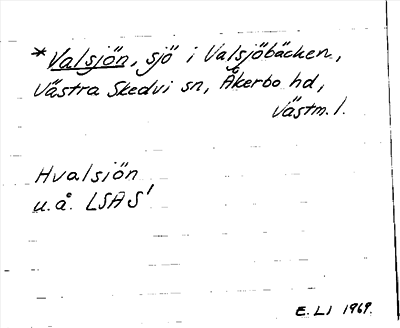 *Valsjön, sjö i Valsjöbäcken,
Västra Skedvi sn, Åkerbo hd,
Västm. l.
Hvalsjön
u.å. LSA S1
E. LI 1969.